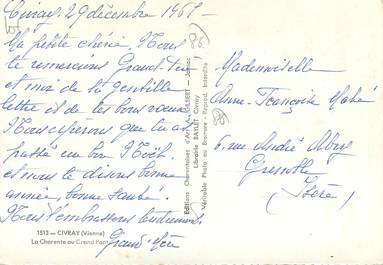 Civray 29 décembre 1965 -
Ma petite chérie. Nous
te remercions Grand-Père
et moi de ta gentille
lettre et de tes bons vœux.
Nous espérons que tu as
passé un bon Noël
et nous te disons bonne
année, bonne santé.
Nous t'embrassons tendrement
Grand-Mère
1513 — CIVRAY (Vienne)
La Charente au Grand Pont
Editions Charentaises d'Art A. GILBERT - Jarnac
Librairie BAYLET Civray
Véritable Photo au Bromure - Reprod. Interdite
86
Mademoiselle
Anne-Françoise Mahé
6 rue André Abry
Grenoble
(Isère)